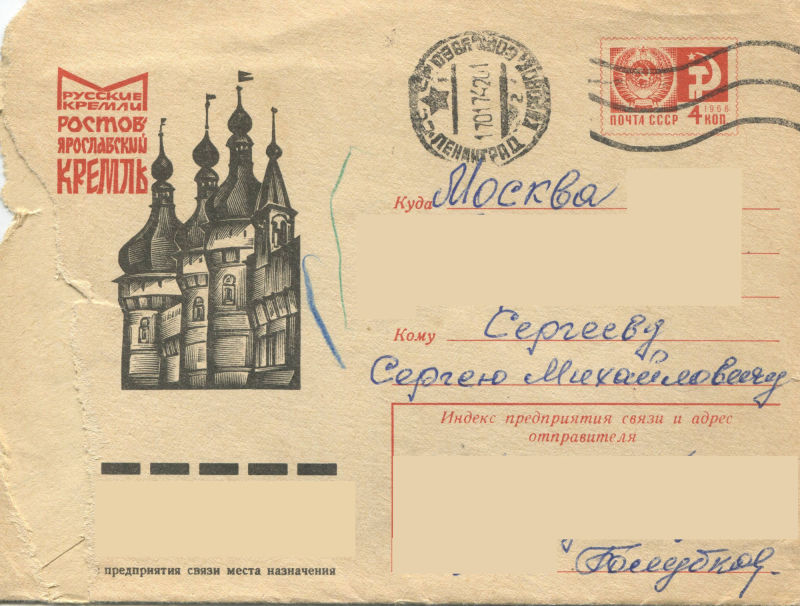 РУССКИЕ
КРЕМЛИ
РОСТОВ
ЯРОСЛАВСКИЙ
КРЕМЛЬ
ЛЕНИНГРАД
1966
ПОЧТА СССР 4 КОП
Куда Москва
Кому Сергееву
Сергею Михайловичу
Индекс предприятия связи и адрес
отправителя
Голубков
предприятия связи места назначения